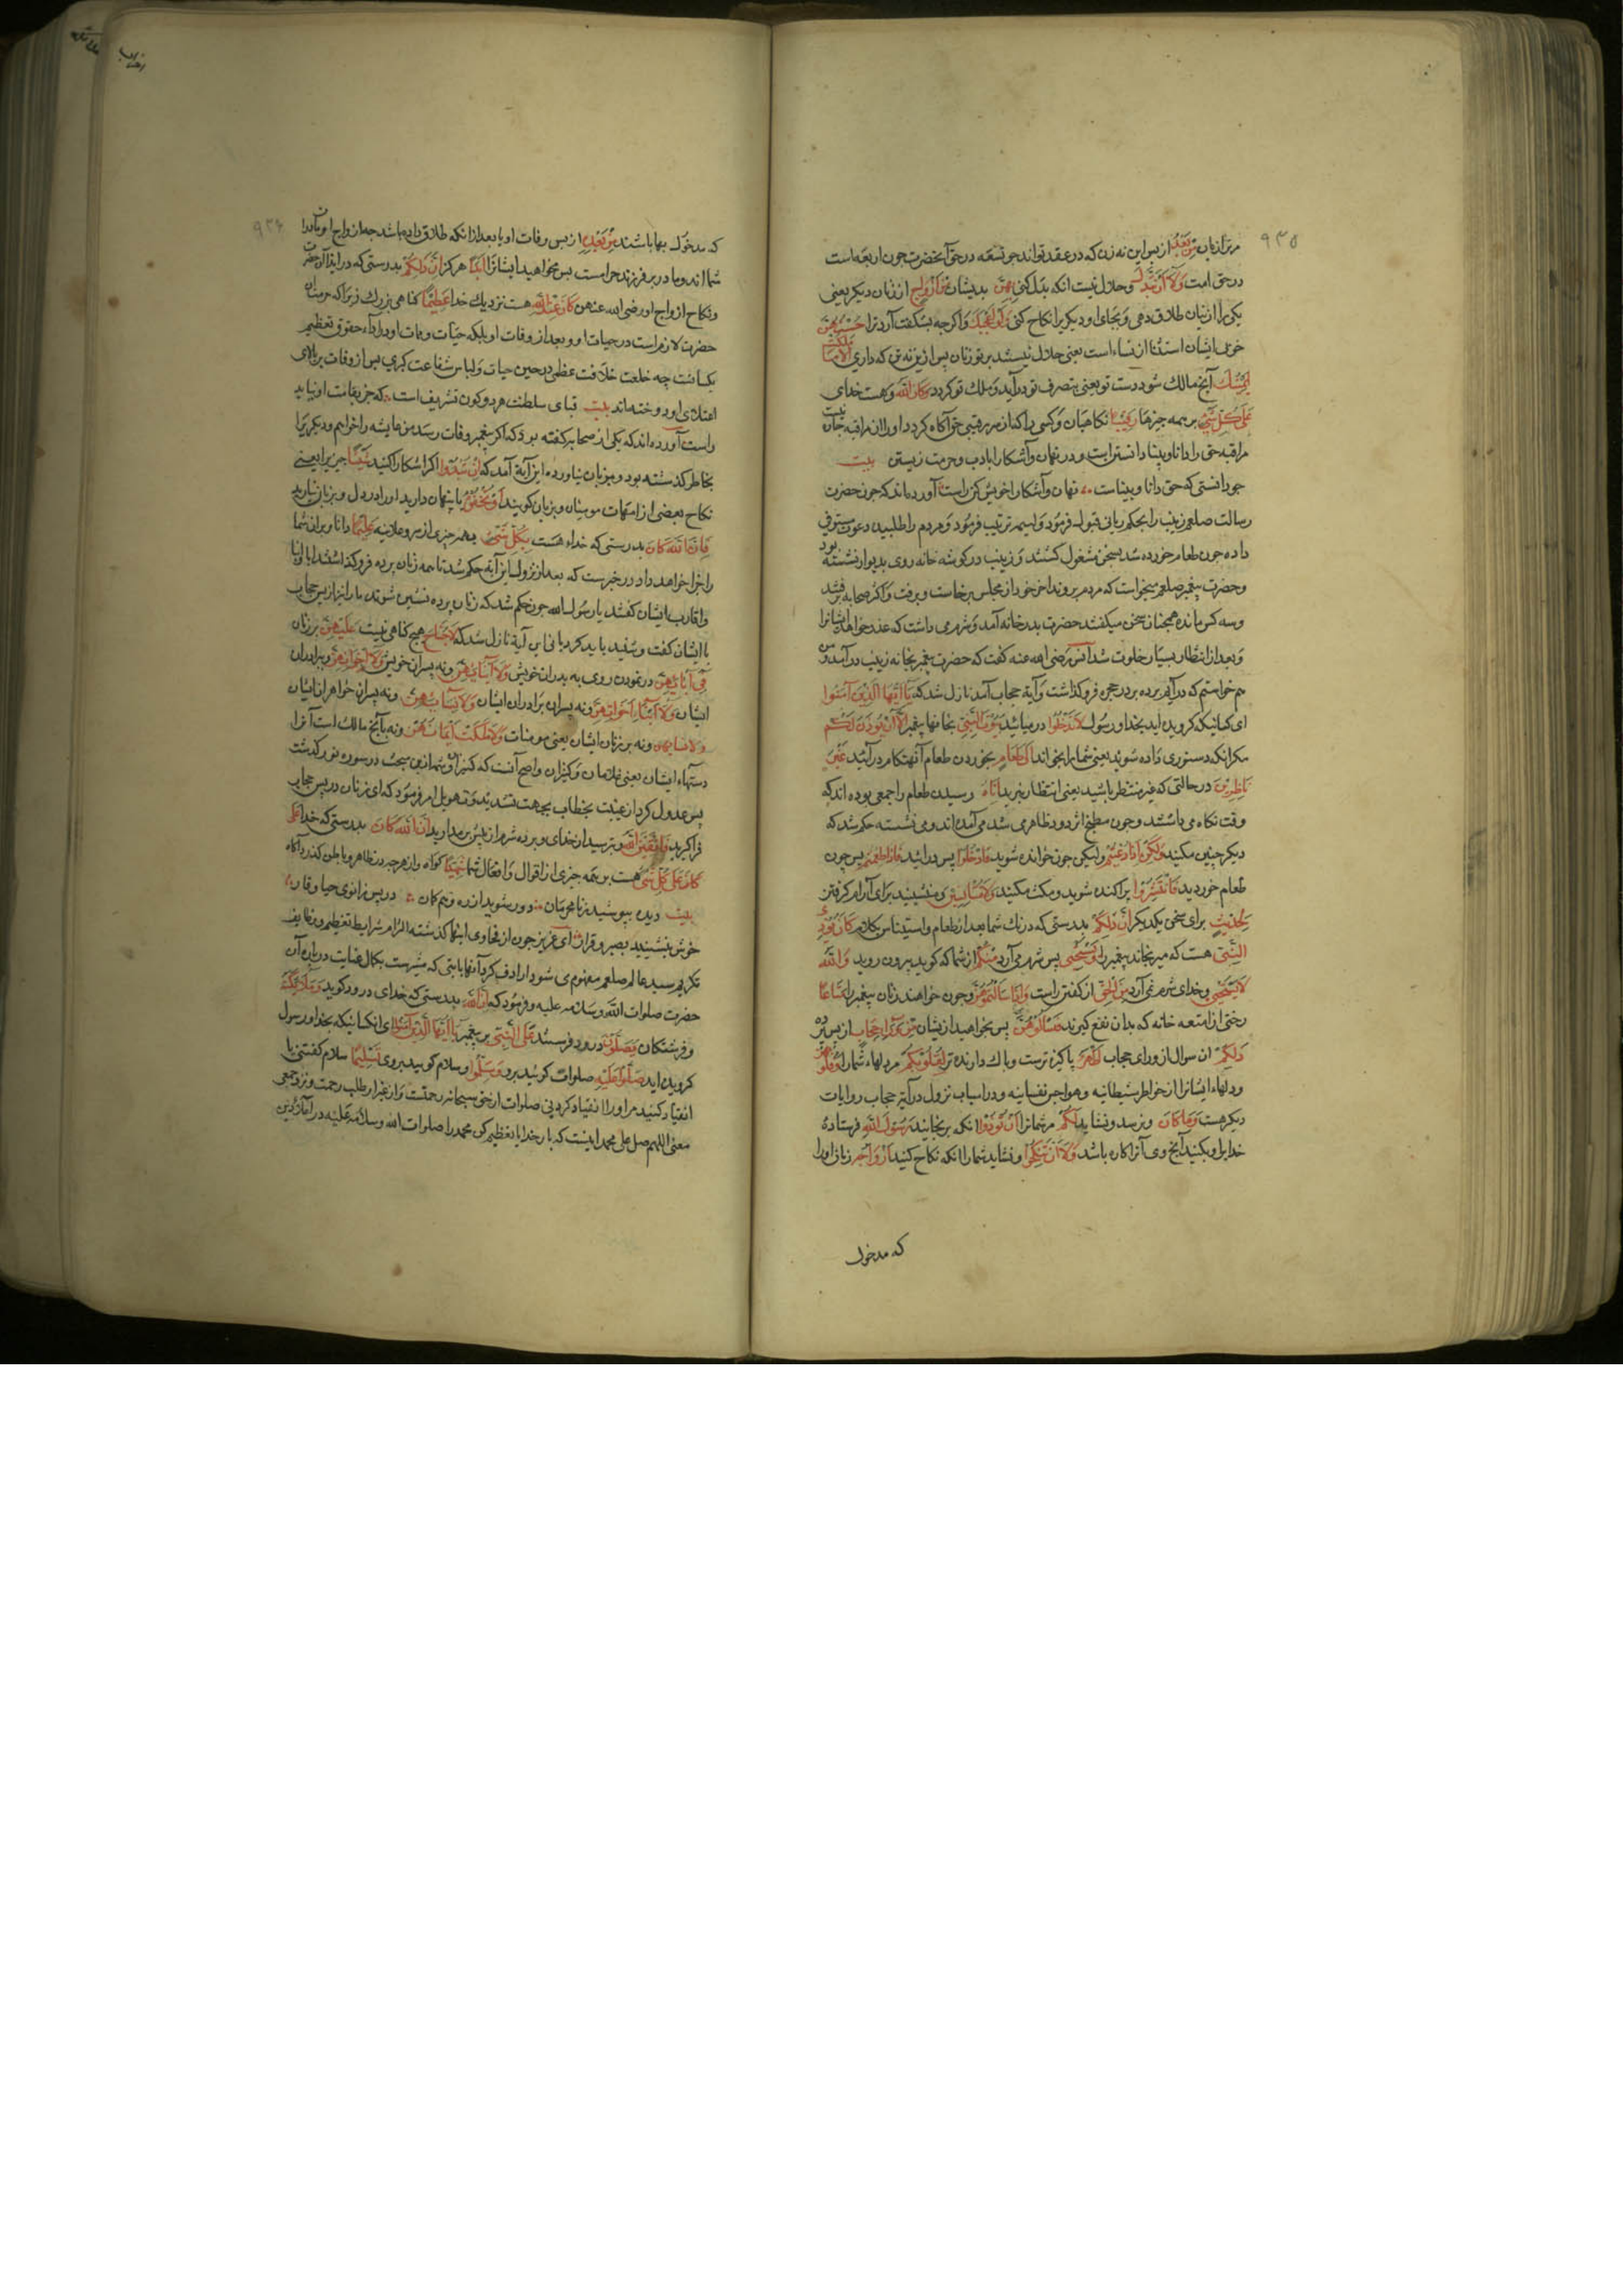 ۹۳۵
مر ترا زنان مِنْ بَعْدُ از پس این نه زن که در عقد تواند جو تسعه در حق آنحضرت چون اربعه است
در حق امت وَلَا أَنْ تَبَدَّلَ و حلال نیست انکه بدل کنی بِهِنَّ بدیشان مِنْ أَزْوَاجٍ از زنان دیکر یعنی
یکی را از زنان طلاق دهی و بجای او دیکریرا نکاح کنی وَلَوْ أَعْجَبَكَ و اکرچه بشکفت آرد ترا حُسْنُهُنَّ
خوبی ایشان استثنا از نساء است یعنی حلال نیستند بر تو زنان پس ازین نه تن که داری إِلَّا مَا مَلَكَتْ
يَمِينُكَ آنچ مالك شود دست تو یعنی بتصرف تو در آید و ملك تو کردد وَكَانَ اللهُ و هست خدای
عَلَى كُلِّ شَيْءٍ بر همه چیزها رَقِيبًا نکاهبان و کسی را که از سر رقیبی حق آکاه کردد او را از مراقبه چاره نیست
مراقبه حق را دانا و بینا دانستن است و در نهان و آشکارا با ادب و حرمت زیستن بیت
جو دانستی که حق دانا و بیناست نهان و آشکارا خویش کن راست آورده‌اند که چون حضرت
رسالت صلعم زینب را بحکم ربانی قبول فرمود و لیمه ترتیب فرمود و مردم را طلبیده دعوت مستوفی
داده چون طعام خورده شد بسخن مشغول کشتند و زینب در کوشه خانه روی بدیوار نشسته بود
و حضرت پیغمبر صلعم میخواست که مردم بروند اخر خود از مجلس برخاست و برفت و اکثر صحابه برفتند
و سه کس مانده همچنان سخن میکفتند حضرت بدر خانه آمد و شرم می داشت که عذر خواهد ایشانرا
و بعد از انتظار بسیار خلوت شد انس رضی الله عنه کفت که حضرت پیغمبر بخانه زینب در آمد و من
هم خواستم که در آیم پرده بر در حجره فرو کذاشت و آیة حجاب آمد نازل شد که يَا أَيُّهَا الَّذِينَ آمَنُوا
ای کسانیکه کرویده‌اید بخدا و رسول لَا تَدْخُلُوا در میائید بُيُوتَ النَّبِيِّ بخانهای پیغمبر إِلَّا أَنْ يُؤْذَنَ لَكُمْ
مکر انکه دستوری داده شوید یعنی شما را بخوانند إِلَى طَعَامٍ بخوردن طعام آنهنکام در آئید غَيْرَ
نَاظِرِينَ در حالتی که غیر منتظر باشید یعنی انتظار نبرید إِنَاهُ رسیدن طعام را جمعی بوده اند که
وقت نکاه می داشتند و چون مطبخ اثر دود ظاهر می شد می آمدند و می نشسته حکم شد که
دیکر چنین مکنید وَلَكِنْ إِذَا دُعِيتُمْ ولیکن چون خوانده شوید فَادْخُلُوا پس در ائید فَإِذَا طَعِمْتُمْ پس چون
طعام خوردید فَانْتَشِرُوا پراکنده شوید و مکث مکنید وَلَا مُسْتَأْنِسِينَ و منشینید برای آرام کرفتن
لِحَدِيثٍ برای سخن یکدیکر إِنَّ ذَلِكُمْ بدرستی که درنك شما بعد از طعام و استیناس بکلام كَانَ يُؤْذِي
النَّبِيَّ هست که میرنجاند پیغمبر را فَيَسْتَحْيِي پس شرم می آرد مِنْكُمْ از شما که کوید بیرون روید وَاللهُ
لَا يَسْتَحْيِي و خدای شرم نمی آرد مِنَ الْحَقِّ از کفتن راست وَإِذَا سَأَلْتُمُوهُنَّ و چون خواهند زنان پیغمبر را مَتَاعًا
رختی از امتعه خانه که بدان نفع کیرند فَسْأَلُوهُنَّ پس بخواهید از ایشان مِنْ وَرَاءِ حِجَابٍ از پس پرده
ذَلِكُمْ ان سوال از ورای حجاب أَطْهَرُ پاکیزه ترست و پاك دارنده تر لِقُلُوبِكُمْ مر دلهاء شما را وَقُلُوبِهِنَّ
و دلهاء ایشانرا از خواطر شیطانیه و هواجس نفسانیه و در اسباب نزول در آیة حجاب روایات
دیکر هست وَمَا كَانَ و نرسد و نشاید لَكُمْ مر شما را أَنْ تُؤْذُوا انکه برنجانید رَسُولَ اللهِ فرستاده
خدایرا و بکنید آنچ وی آنرا کاره باشد وَلَا أَنْ تَنْكِحُوا و نشاید شما را انکه نکاح کنید أَزْوَاجَهُ زنان او را
که مدخول
۹۳۶
که مدخول بها باشند مِنْ بَعْدِهِ از پس وفات او یا بعد از انکه طلاق داده باشد چه ازواج او مادران
شما اند و مادر بر فرزند حرامست پس مخواهید ایشانرا أَبَدًا هرکز إِنَّ ذَلِكُمْ بدرستی که در ایذا آن حضرت
و نکاح ازواج او رضی الله عنهن كَانَ عِنْدَ اللهِ هست نزدیك خدا عَظِيمًا کناهی بزرك زیرا که حرمت آن
حضرت لازم است در حیات او و بعد از وفات او بلکه حیات و ممات او در اداء حقوق تعظیم
یکسانست چه خلعت خلافت عظمی در حین حیات و لباس شفاعت کبری پس از وفات بر بالای
اعتلای او دوخته‌اند بیت قبای سلطنت هر دو کون تشریف است که جز بقامت او نیاید
راست آورده‌اند که یکی از صحابه کفته بود که اکر پیغمبر وفات رسد من عایشه را خواهم و دیکریرا
بخاطر کذشته بود و بر زبان نیاورده این آیة آمد که إِنْ تُبْدُوا اکر اشکارا کنید شَيْئًا چیزیرا یعنی
نکاح بعضی از امهات مومنان و بزبان کویند أَوْ تُخْفُوهُ یا پنهان دارید او را در دل و بزبان نیارید
فَإِنَّ اللهَ كَانَ بدرستی که خداء هست بِكُلِّ شَيْءٍ بهمه چیزی از سر و علانیه عَلِيمًا دانا و بران شما
را جزا خواهد داد در خبرست که بعد از نزول این آیة حکم شد تا همه زنان پرده فرو کذاشتند ابا و ابنا
و اقارب ایشان کفتند یا رسول الله چون حکم شد که زنان پرده نشین شوند ما را نیز از پس حجاب
با ایشان کفت و شنید باید کرد یا نی این آیة نازل شد که لَا جُنَاحَ هیچ کناهی نیست عَلَيْهِنَّ بر زنان
فِي آبَائِهِنَّ در نمودن روی به پدران خویش وَلَا أَبْنَائِهِنَّ و نه پسران خویش وَلَا إِخْوَانِهِنَّ و برادران
ایشان وَلَا أَبْنَاءِ أَخَوَاتِهِنَّ و نه پسران برادران ایشان وَلَا نِسَائِهِنَّ و نه پسران خواهران ایشان
وَلَا نِسَائِهِنَّ و نه بر زنان ایشان یعنی مومنات وَلَا مَا مَلَكَتْ أَيْمَانُهُنَّ و نه بآنچ مالك است آنرا
دستهاء ایشان یعنی غلامان و کنیزان و اصح آنست که کنیزان و شمه ازین مبحث در سوره نور کذشت
پس عدول کرد از غیبت بخطاب بجهت تشدید و تهویل امر فرمود که ای زنان در پس حجاب
فرا کیرید وَاتَّقِينَ اللهَ و بترسید از خدای و پرده شرم از پیش بر مدارید إِنَّ اللهَ كَانَ بدرستی که خدا عَلَى
كَانَ عَلَى كُلِّ شَيْءٍ هست بر همه چیزی از اقوال و افعال شما شَهِيدًا کواه و از هرچه در ظاهر و باطن کذرد آکاه
بیت دیده بپوشید ز نامحرمان دور شوید از ره وهم کمان در پس زانوی حیا و قار
خوش بنشینید بصبر و قرار ای عزیز چون از فحاوی اینها کذشته الزام شرایط تعظیم و وظایف
تکریم سید عالم صلعم مفهوم می شود ارادف کرد آنها بایتی که مشیرست بکمال عنایت در باره آن
حضرت صلوات الله و سلامه علیه و فرمود که إِنَّ اللهَ بدرستی که خدای درود کوید وَمَلَائِكَتَهُ
و فرشتکان يُصَلُّونَ درود فرستند عَلَى النَّبِيِّ بر پیغمبر يَا أَيُّهَا الَّذِينَ آمَنُوا ای انکسانیکه بخدا و رسول
کرویده اید صَلُّوا عَلَيْهِ صلوات کوئید برو وَسَلِّمُوا و سلام کویید بروی تَسْلِيمًا سلام کفتنی یا
انقیاد کنید مر او را انقیاد کردنی صلوات از حق سبحانه رحمتست و از غیر او طلب رحمت و نزد جمعی
معنی اللهم صل علی محمد اینست که بار خدایا تعظیم کن محمد را صلوات الله و سلامه علیه در